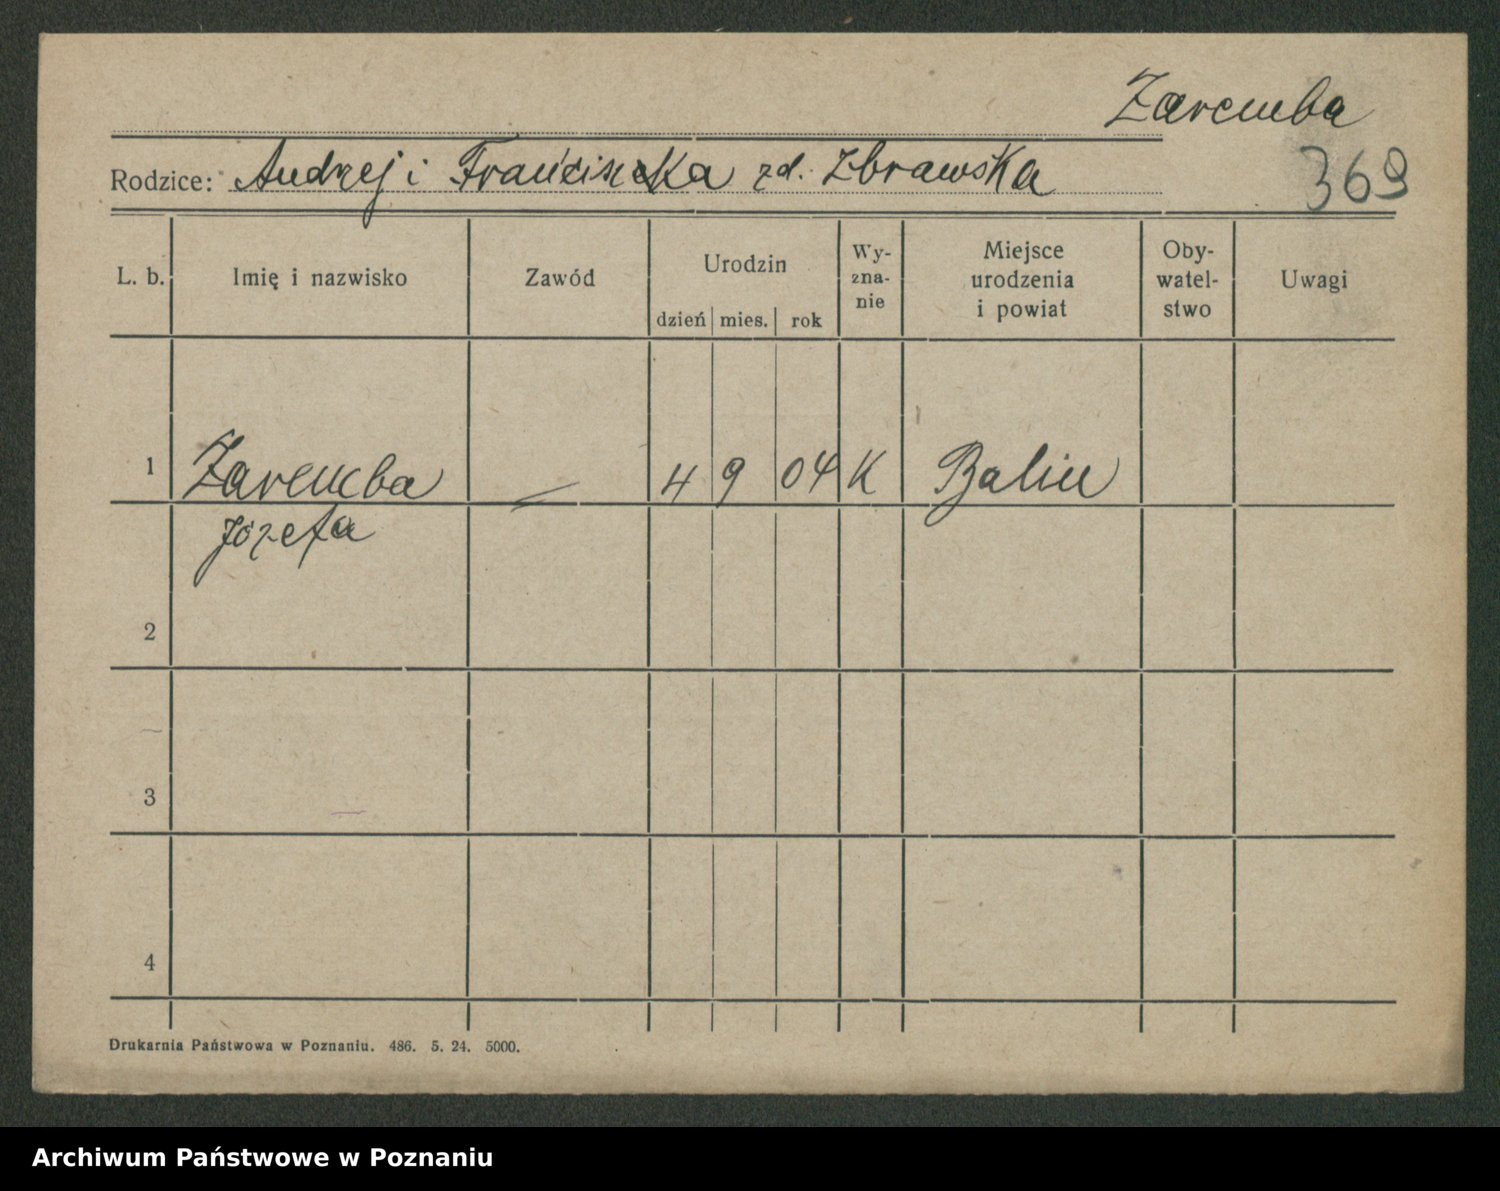 Zaremba
Rodzice: Andrzej i Franciszka zd. Zbrawska
369
L. b. Imię i nazwisko Zawód Urodzin dzień mies. rok Wy-zna-nie Miejsce urodzenia i powiat Oby-watel-stwo Uwagi
1 Zaremba — 4 9 04 K Balin
Józefa
2
3
4
Drukarnia Państwowa w Poznaniu. 486. 5. 24. 5000.
Archiwum Państwowe w Poznaniu